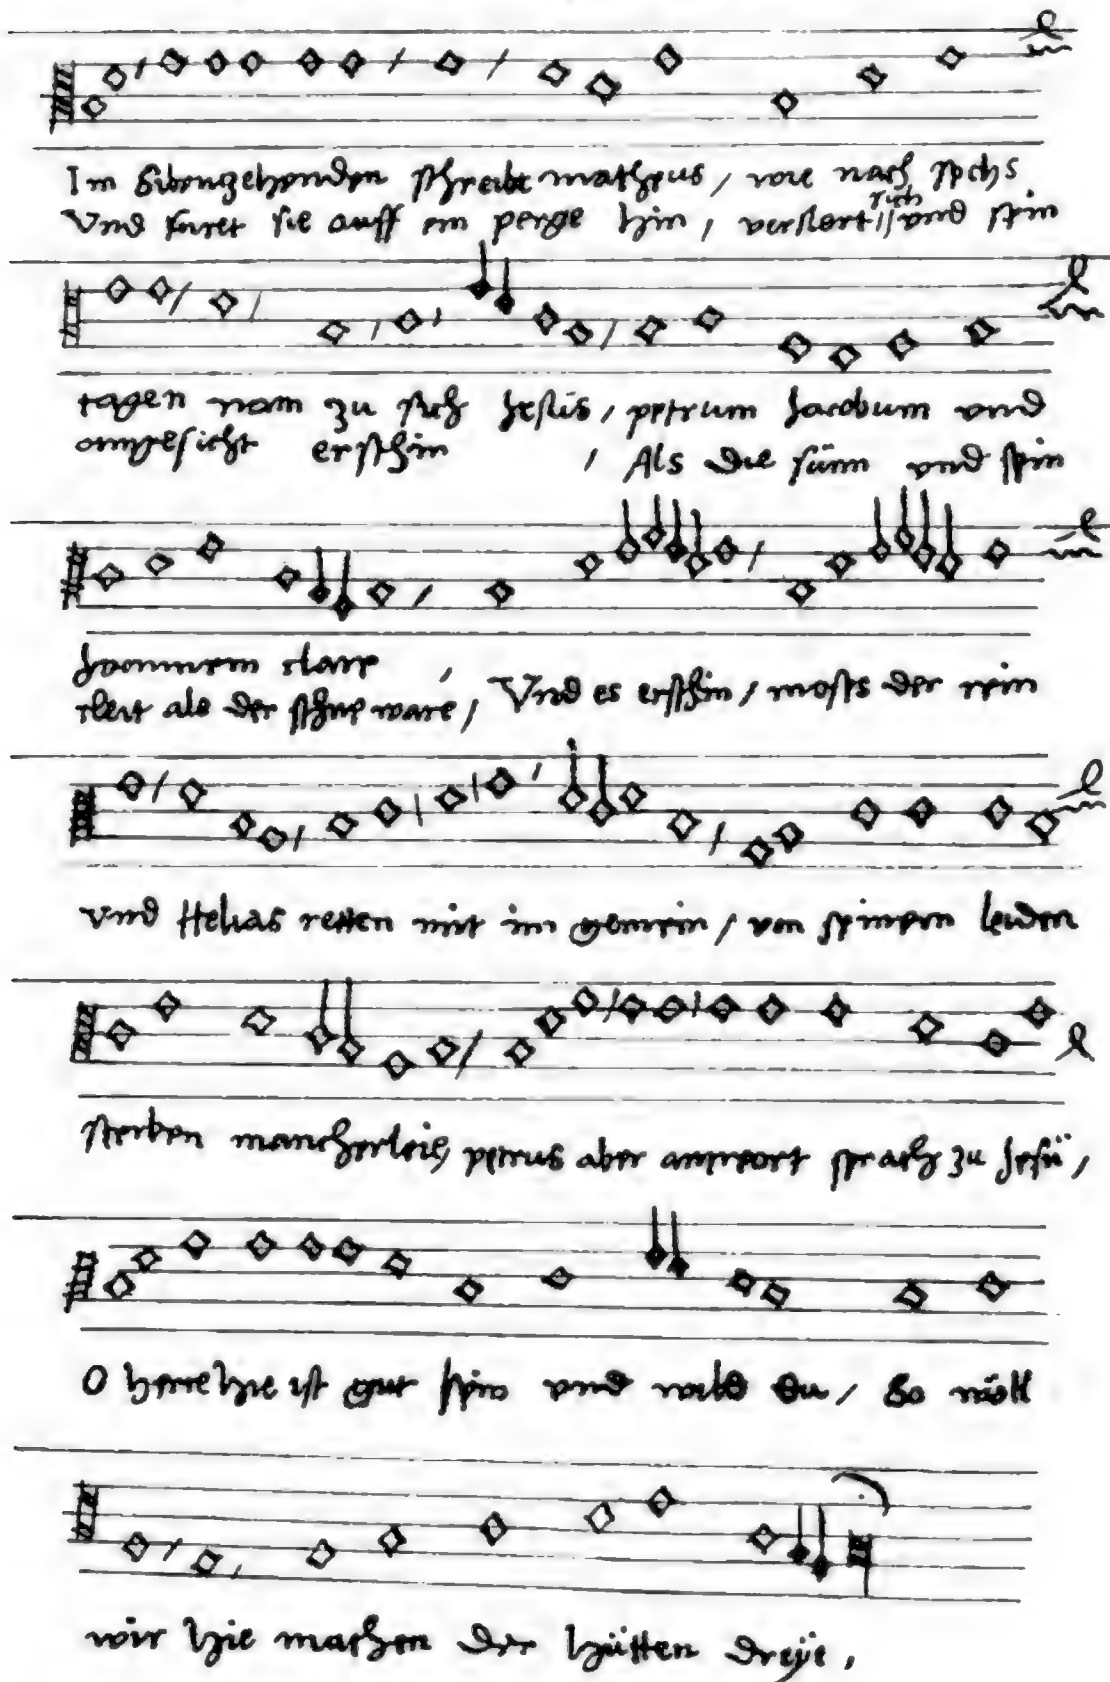 Im Sibenzehenden schreibt matheus / wie nach sechs
Vnd füret sie auff ein perge hin / verklert sich vnd sein
tagen nam zu sich Jesus / petrum Jacobum vnd
anngesicht erschin / Als die sünn vnd sein
Joannem clare /
cleit als der schne ware / Vnd es erschin / moses der rein
vnd Helias retten mit im gemein / von seinem leiden
sterben mancherleis petrus aber antwort sprach zu Jesü /
O herre hie ist gut sein vnd wild du / So wöll
wir hie machen der hütten dreÿe /